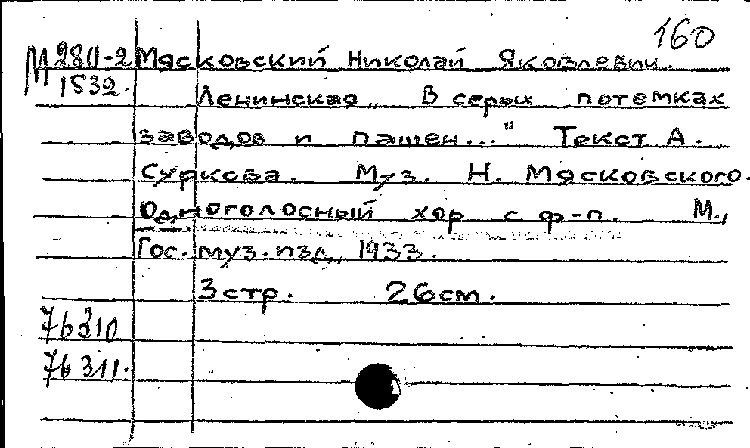 160
М 280-2 Мясковский Николай Яковлевич.
1532.
Ленинская „В серых потемках
заводов и пашен..." Текст А.
Суркова. Муз. Н. Мясковского.
Одноголосный хор с ф-п. М.,
Гос. муз. изд., 1933.
3 стр. 26 см.
76310
76311.